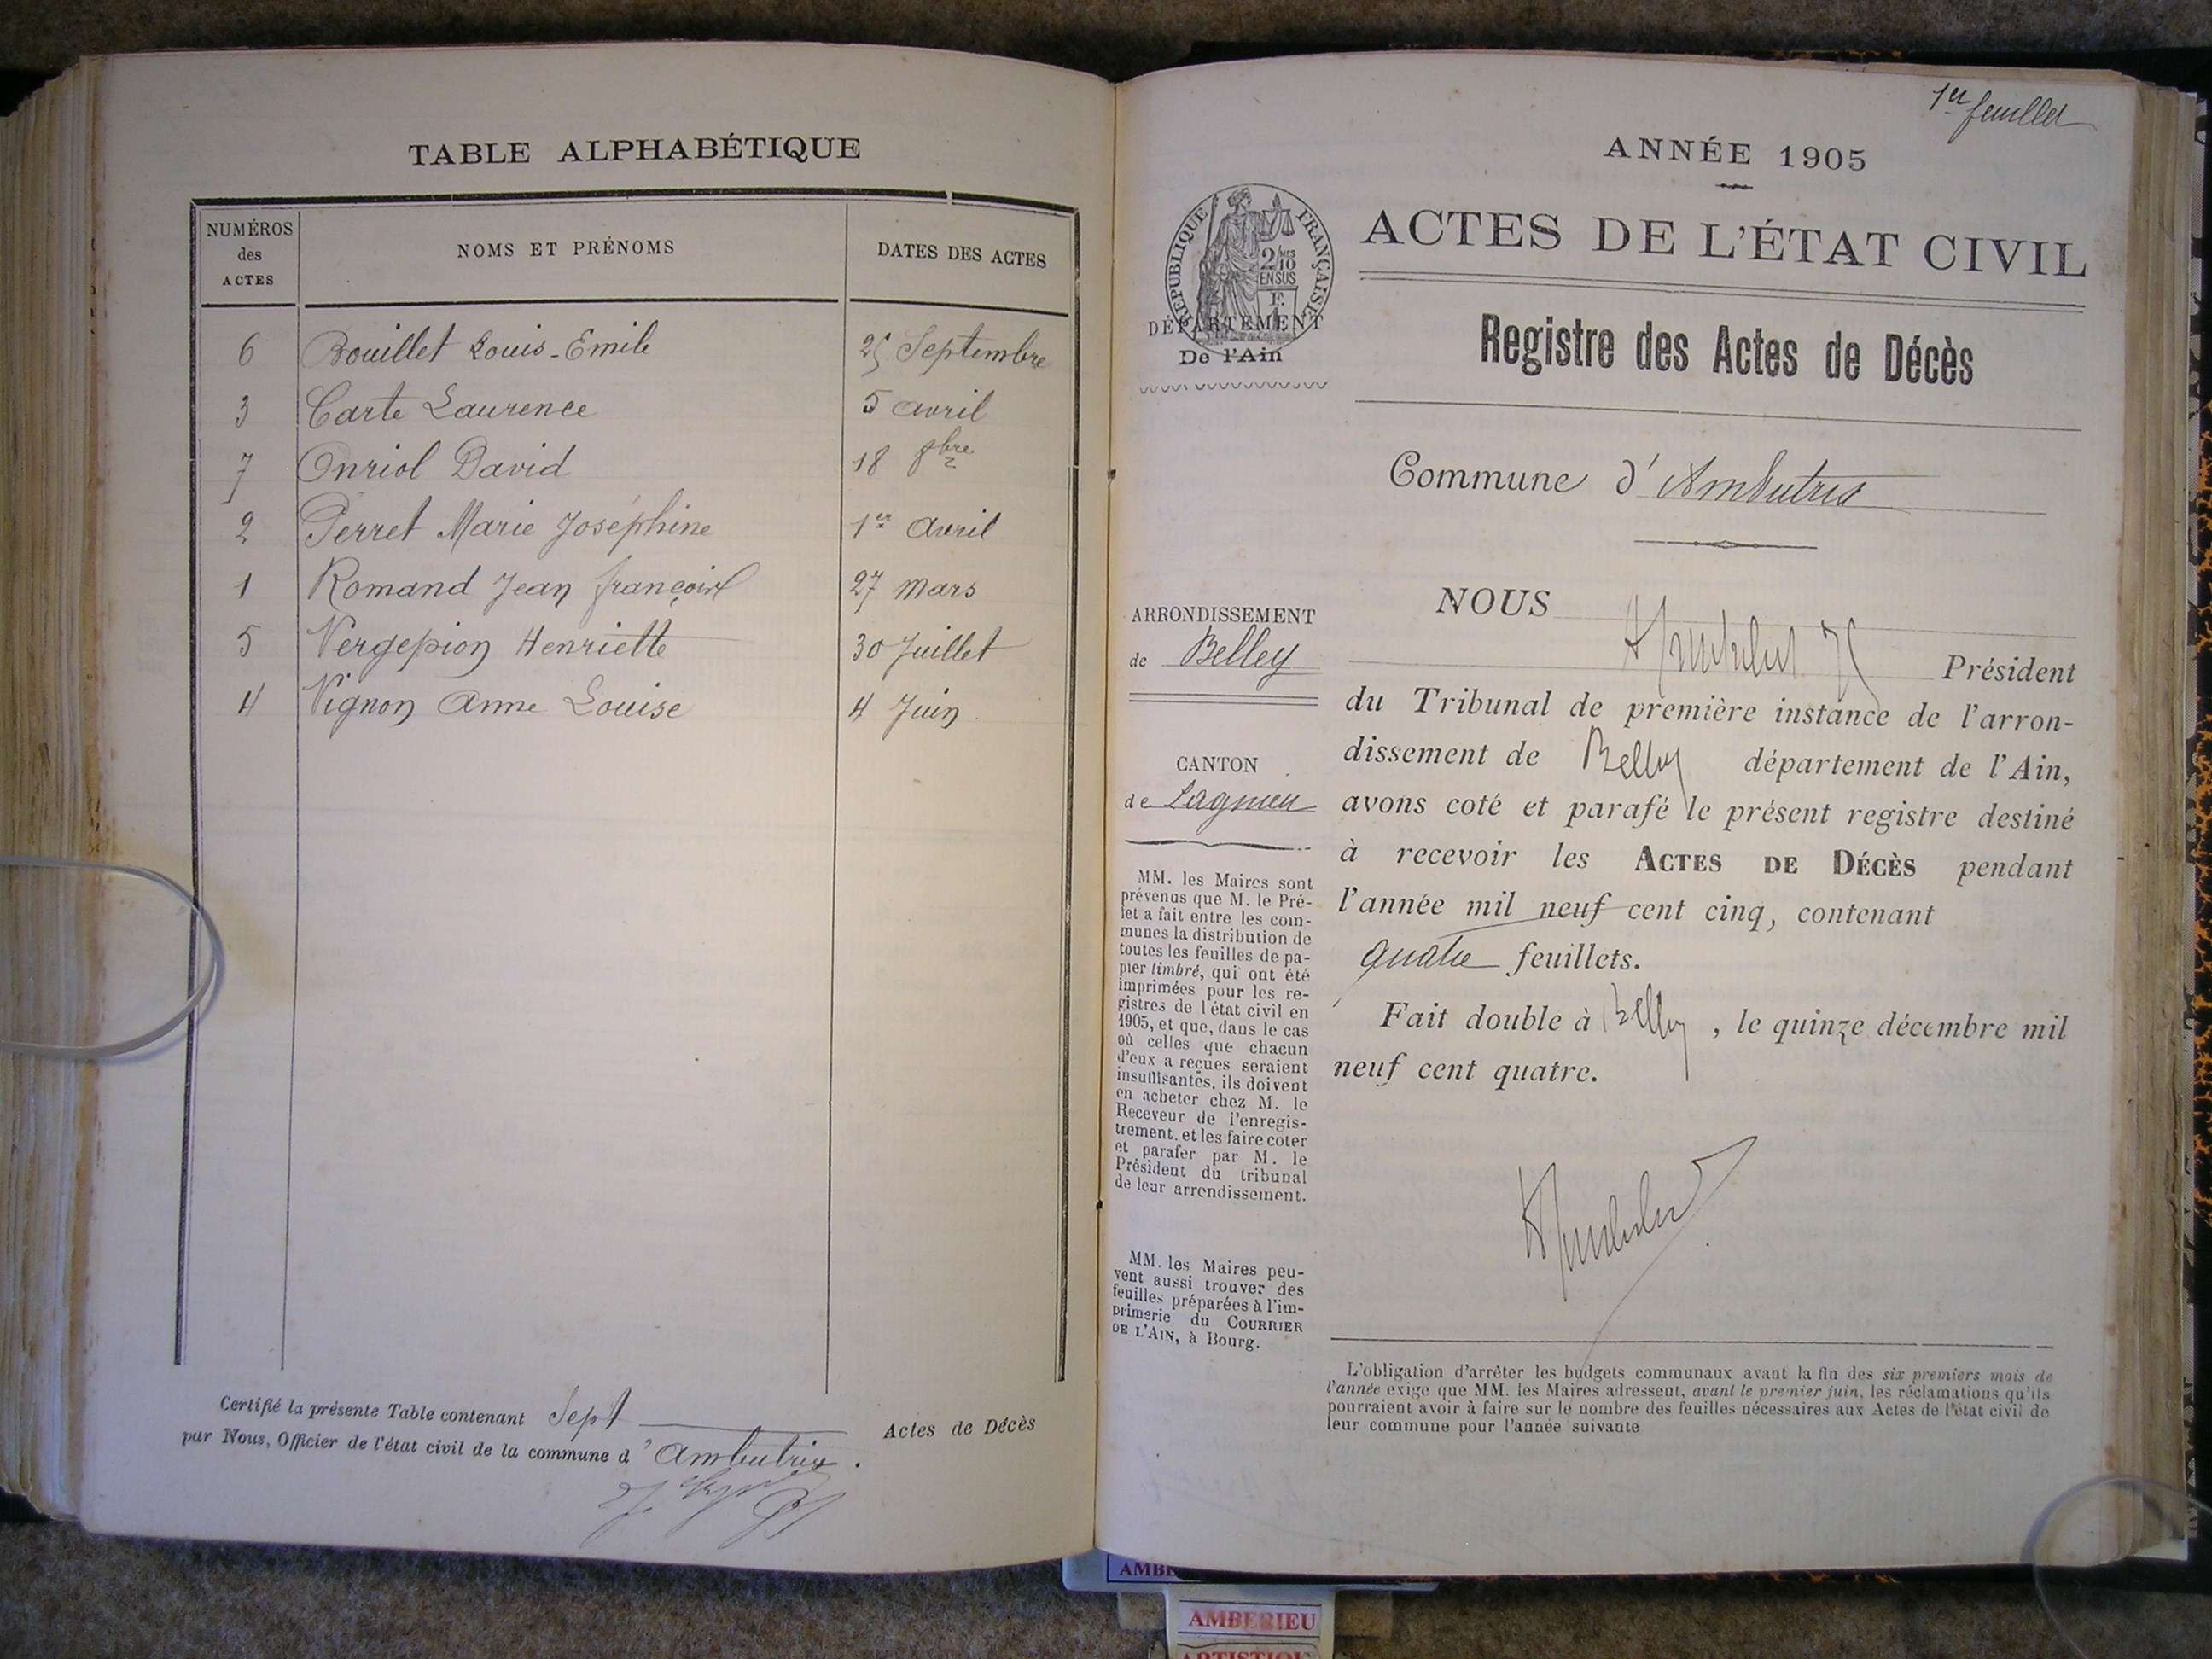 TABLE ALPHABÉTIQUE
NUMÉROS des ACTES
NOMS ET PRÉNOMS
DATES DES ACTES
6 Bouillet Louis-Emile 25 Septembre
3 Carte Laurence 5 avril
7 Onriol David 18 8bre
2 Perret Marie Joséphine 1er Avril
1 Romand Jean françois 27 Mars
5 Vergepion Henriette 30 Juillet
4 Vignon Anne Louise 4 Juin
Certifié la présente Table contenant Sept Actes de Décès
par Nous, Officier de l'état civil de la commune d'Ambutrix.
1er feuillet
ANNÉE 1905
ACTES DE L'ÉTAT CIVIL
RÉPUBLIQUE FRANÇAISE
2/10 EN SUS
DÉPARTEMENT
De l'Ain
Registre des Actes de Décès
Commune d'Ambutrix
ARRONDISSEMENT
de Belley
CANTON
de Lagnieu
MM. les Maires sont
prévenus que M. le Pré-
fet a fait entre les com-
munes la distribution de
toutes les feuilles de pa-
pier timbré, qui ont été
imprimées pour les re-
gistres de l'état civil en
1905, et que, dans le cas
où celles que chacun
d'eux a reçues seraient
insuffisantes, ils doivent
en acheter chez M. le
Receveur de l'enregis-
trement, et les faire coter
et parafer par M. le
Président du tribunal
de leur arrondissement.
MM. les Maires peu-
vent aussi trouver des
feuilles préparées à l'im-
primerie du COURRIER
DE L'AIN, à Bourg.
NOUS
Président
du Tribunal de première instance de l'arron-
dissement de Belley département de l'Ain,
avons coté et parafé le présent registre destiné
à recevoir les ACTES DE DÉCÈS pendant
l'année mil neuf cent cinq, contenant
quatre feuillets.
Fait double à Belley, le quinze décembre mil
neuf cent quatre.
L'obligation d'arrêter les budgets communaux avant la fin des six premiers mois de
l'année exige que MM. les Maires adressent, avant le premier juin, les réclamations qu'ils
pourraient avoir à faire sur le nombre des feuilles nécessaires aux Actes de l'état civil de
leur commune pour l'année suivante
AMBE
AMBERIEU